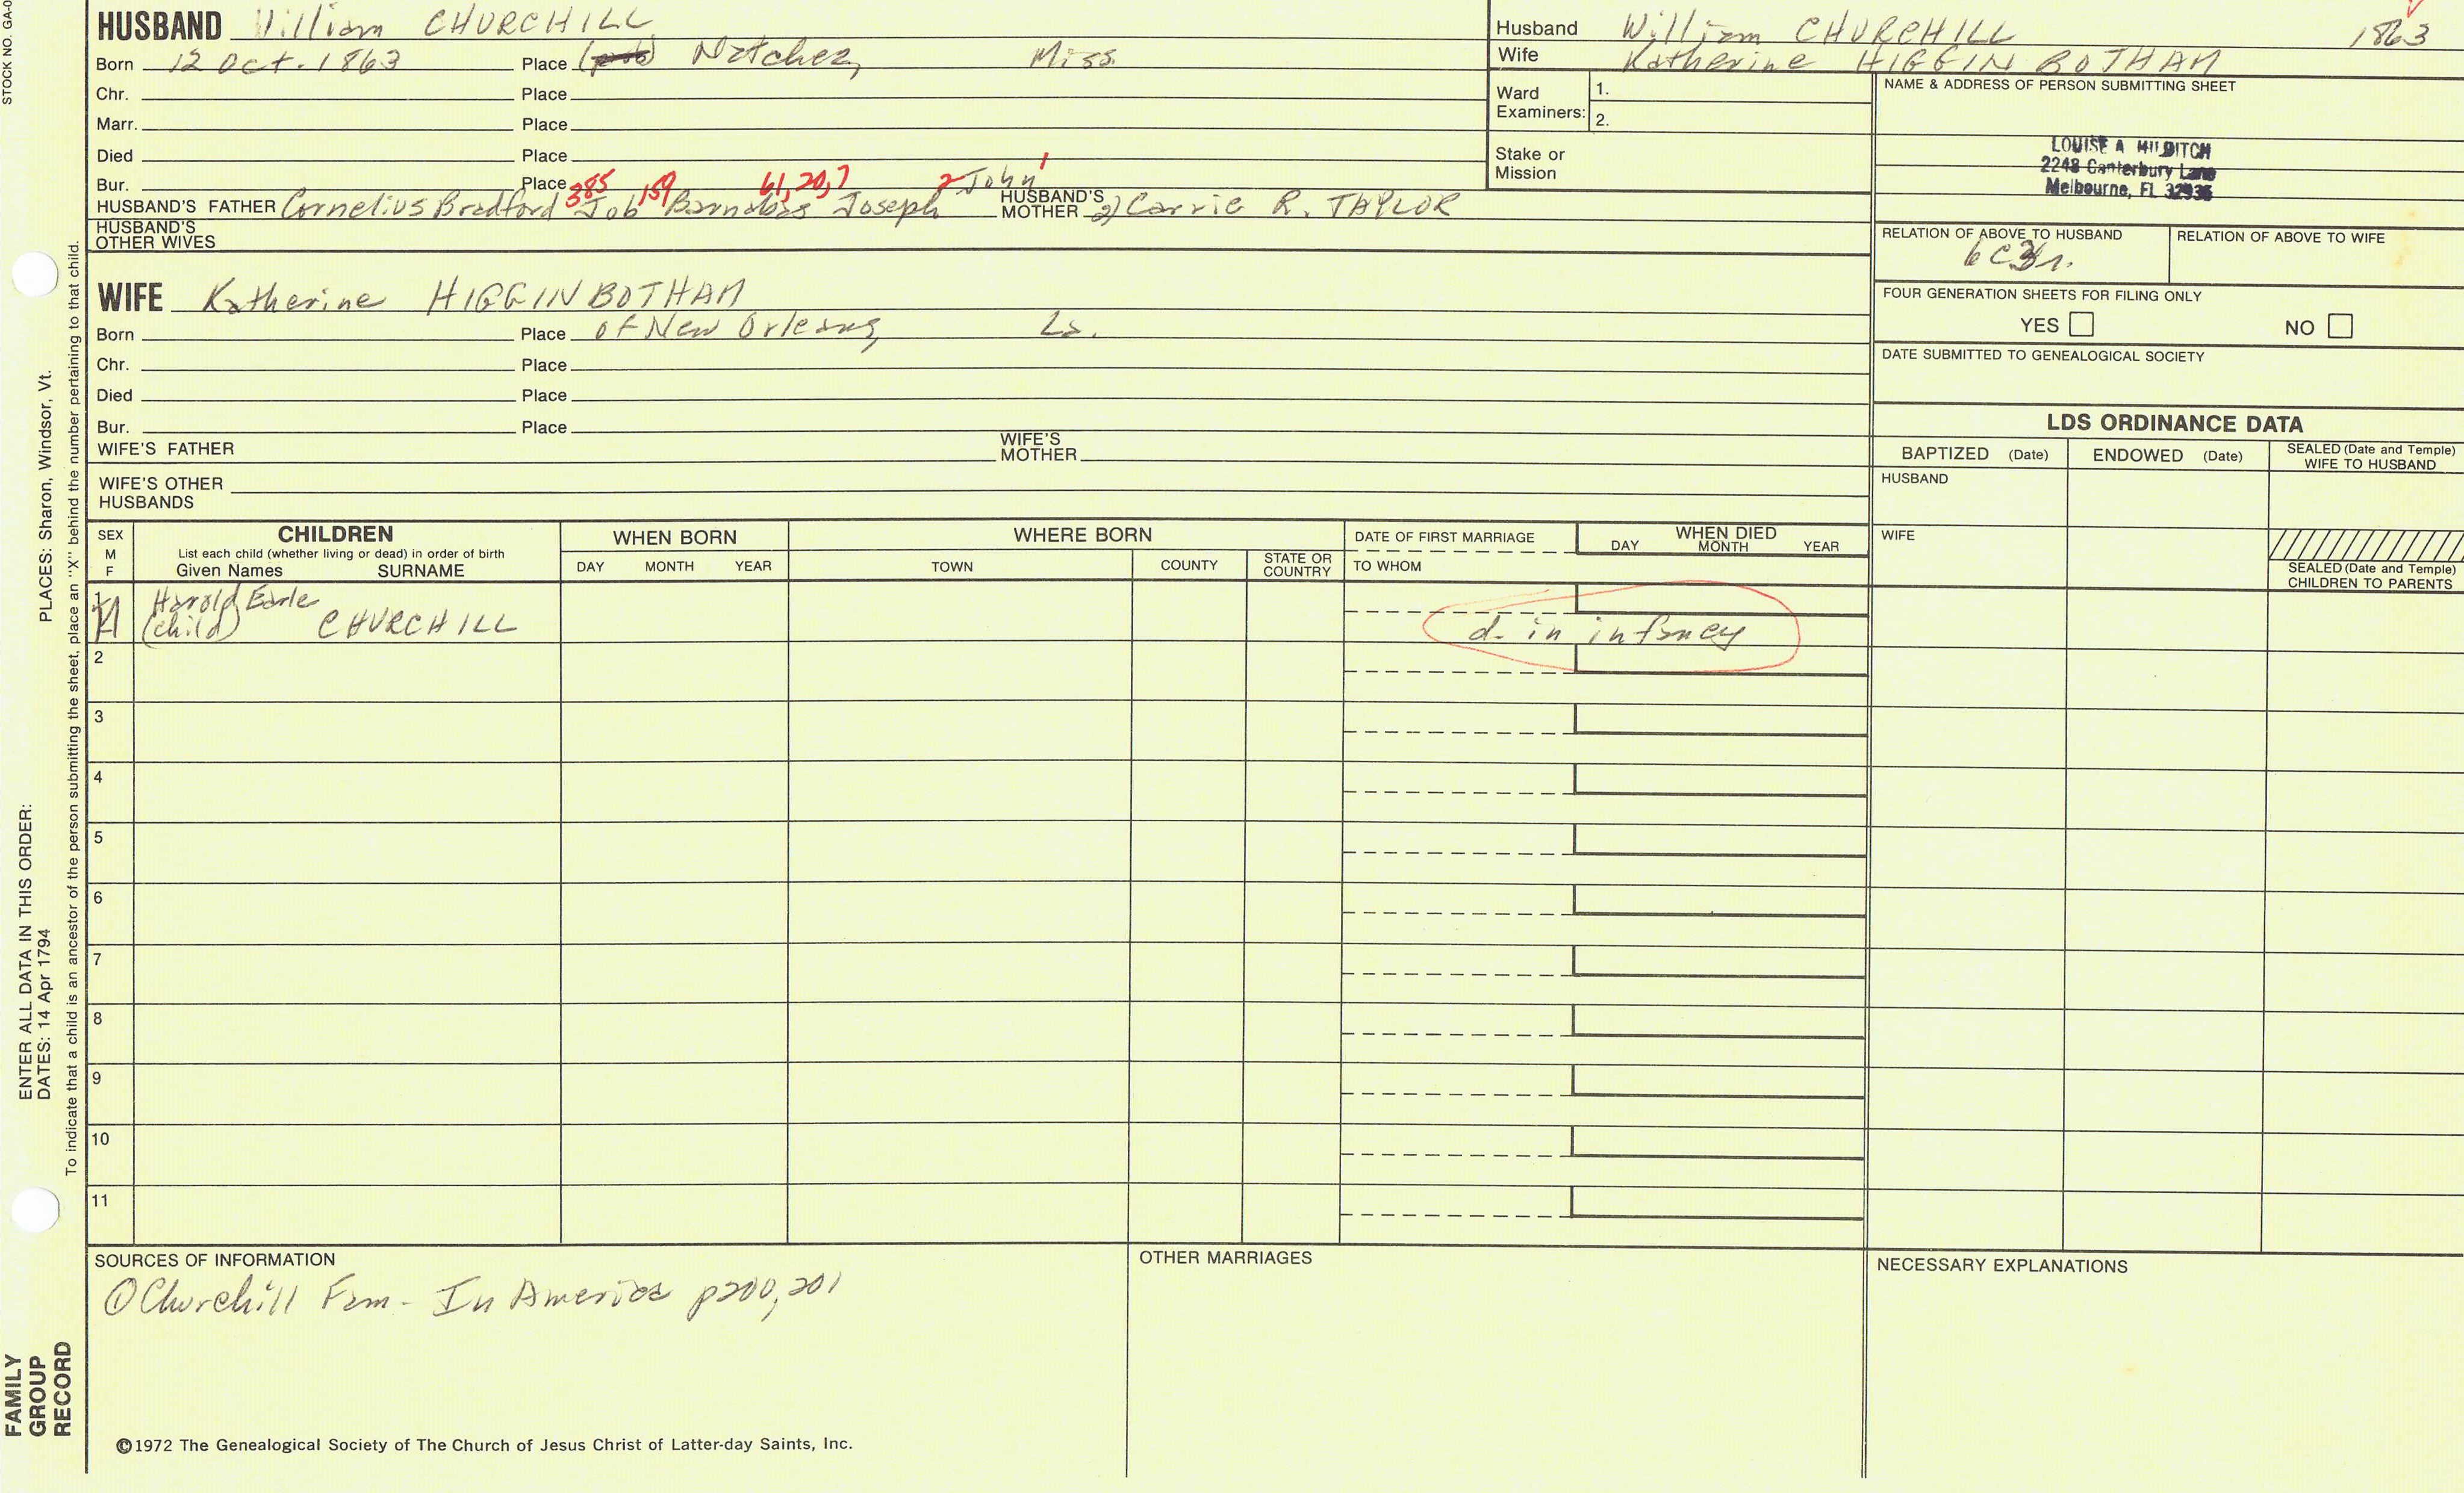 STOCK NO. GA-0
HUSBAND William CHURCHILL
Born 12 Oct. 1863 Place Natchez, Miss
Chr. Place
Marr. Place
Died Place
Bur. Place 385 159 61, 20, 7 2 John 1
HUSBAND'S FATHER Cornelius Bradford Job Barnabas Joseph HUSBAND'S MOTHER 2) Carrie R. TAYLOR
HUSBAND'S OTHER WIVES
WIFE Katherine HIGGINBOTHAM
Born Place of New Orleans, La.
Chr. Place
Died Place
Bur. Place
WIFE'S FATHER WIFE'S MOTHER
WIFE'S OTHER HUSBANDS
Husband William CHURCHILL 1863
Wife Katherine HIGGINBOTHAM
Ward Examiners: 1.
2.
Stake or Mission
NAME & ADDRESS OF PERSON SUBMITTING SHEET
LOUISE A HILDITCH
2248 Canterbury Lane
Melbourne, FL 32935
RELATION OF ABOVE TO HUSBAND RELATION OF ABOVE TO WIFE
6C3r.
FOUR GENERATION SHEETS FOR FILING ONLY
YES NO
DATE SUBMITTED TO GENEALOGICAL SOCIETY
LDS ORDINANCE DATA
BAPTIZED (Date) ENDOWED (Date) SEALED (Date and Temple) WIFE TO HUSBAND
HUSBAND
WIFE
SEALED (Date and Temple) CHILDREN TO PARENTS
SEX M F CHILDREN WHEN BORN WHERE BORN DATE OF FIRST MARRIAGE WHEN DIED
List each child (whether living or dead) in order of birth
Given Names SURNAME DAY MONTH YEAR TOWN COUNTY STATE OR COUNTRY TO WHOM DAY MONTH YEAR
1 M Harold Earle
(child) CHURCHILL d. in infancy
2
3
4
5
6
7
8
9
10
11
SOURCES OF INFORMATION OTHER MARRIAGES NECESSARY EXPLANATIONS
① Churchill Fam - In America p200, 201
©1972 The Genealogical Society of The Church of Jesus Christ of Latter-day Saints, Inc.
FAMILY GROUP RECORD
ENTER ALL DATA IN THIS ORDER:
DATES: 14 Apr 1794 PLACES: Sharon, Windsor, Vt.
To indicate that a child is an ancestor of the person submitting the sheet, place an "X" behind the number pertaining to that child.